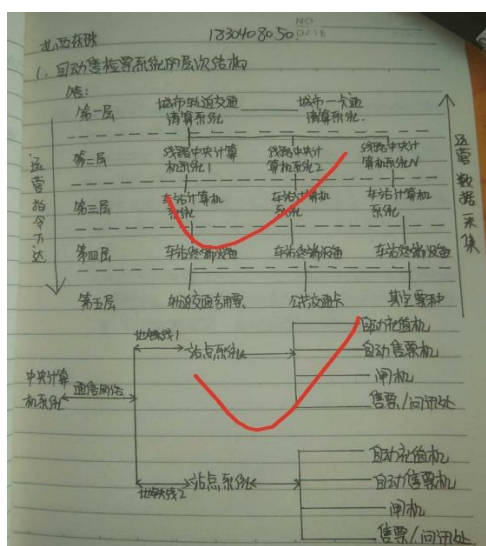 1830408050
NO
DATE
1、自动售检票系统的层次结构
答:
第一层 城市轨道交通清算系统 城市一卡通清算系统.
第二层 线路中央计算机系统1 线路中央计算机系统2 线路中央计算机系统N
第三层 车站计算机系统 车站计算机系统 车站计算机系统
第四层 车站终端设备 车站终端设备 车站终端设备
第五层 轨道交通专用票 公共交通卡 其它票种
运营指令下达
运营数据采集
中央计算机系统
通信网络
地铁线1
站点系统
自动充值机
自动售票机
闸机
售票/问讯处
地铁线2
站点系统
自动充值机
自动售票机
闸机
售票/问讯处